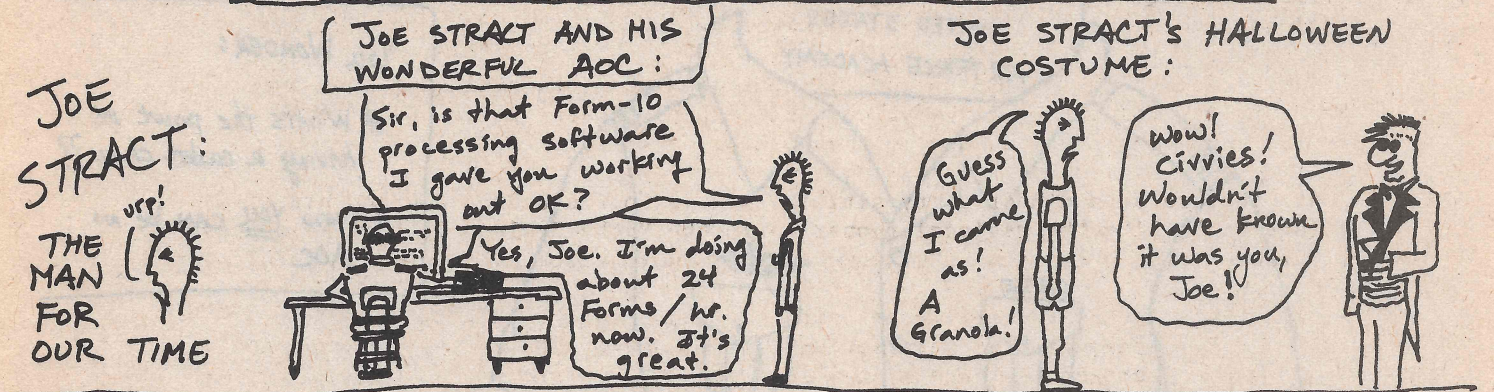 JOE
STRACT:
urp!
THE
MAN
FOR
OUR TIME
JOE STRACT AND HIS
WONDERFUL AOC:
Sir, is that Form-10
processing software
I gave you working
out OK?
Yes, Joe. I'm doing
about 24
Forms/hr.
now. It's
great.
JOE STRACT'S HALLOWEEN
COSTUME:
Guess
what
I came
as!
A
Granola!
Wow!
Civvies!
Wouldn't
have known
it was you,
Joe!